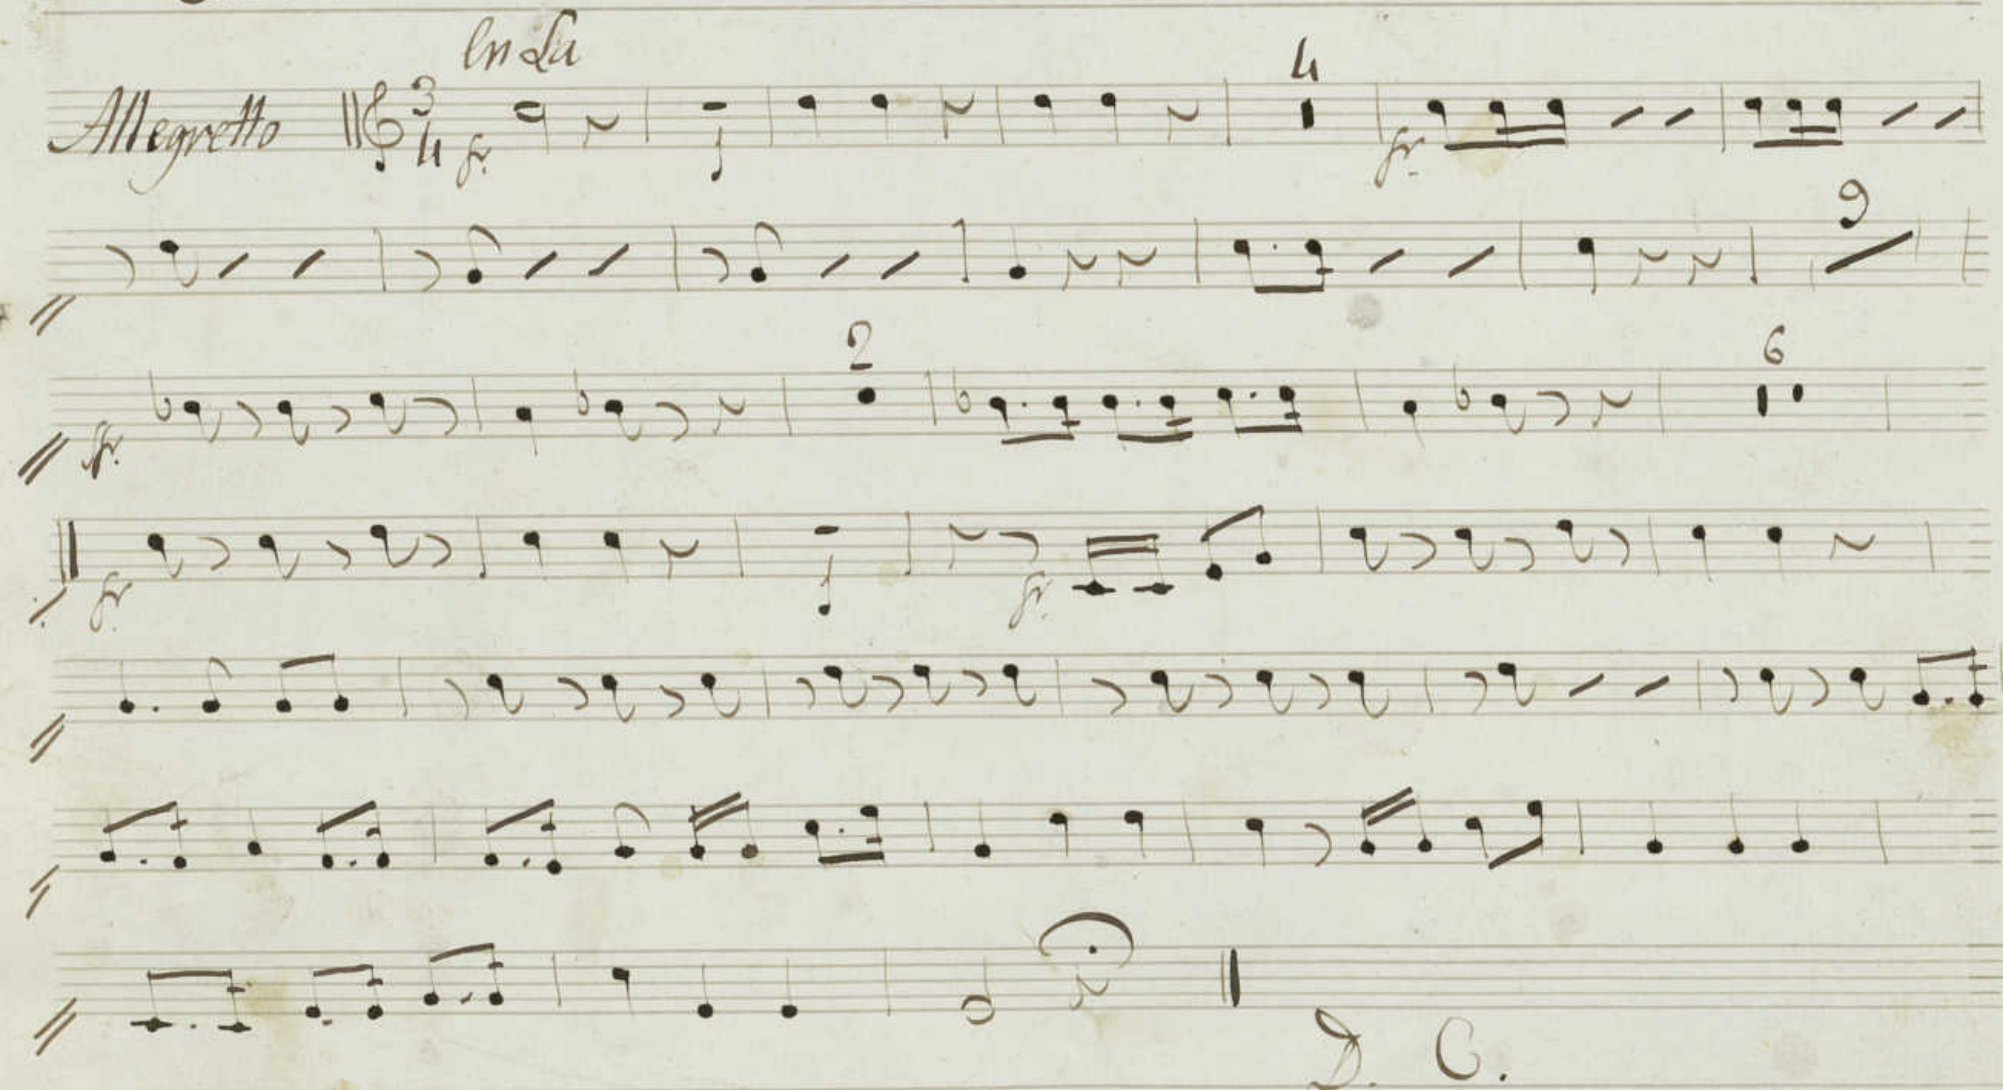 In La
Allegretto 3/4 4
fr. fr.
9
2
fr. 6
fr. fr.
D. C.